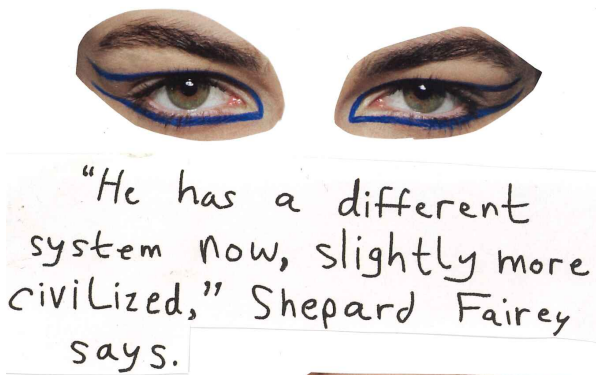 "He has a different
system now, slightly more
civilized," Shepard Fairey
says.